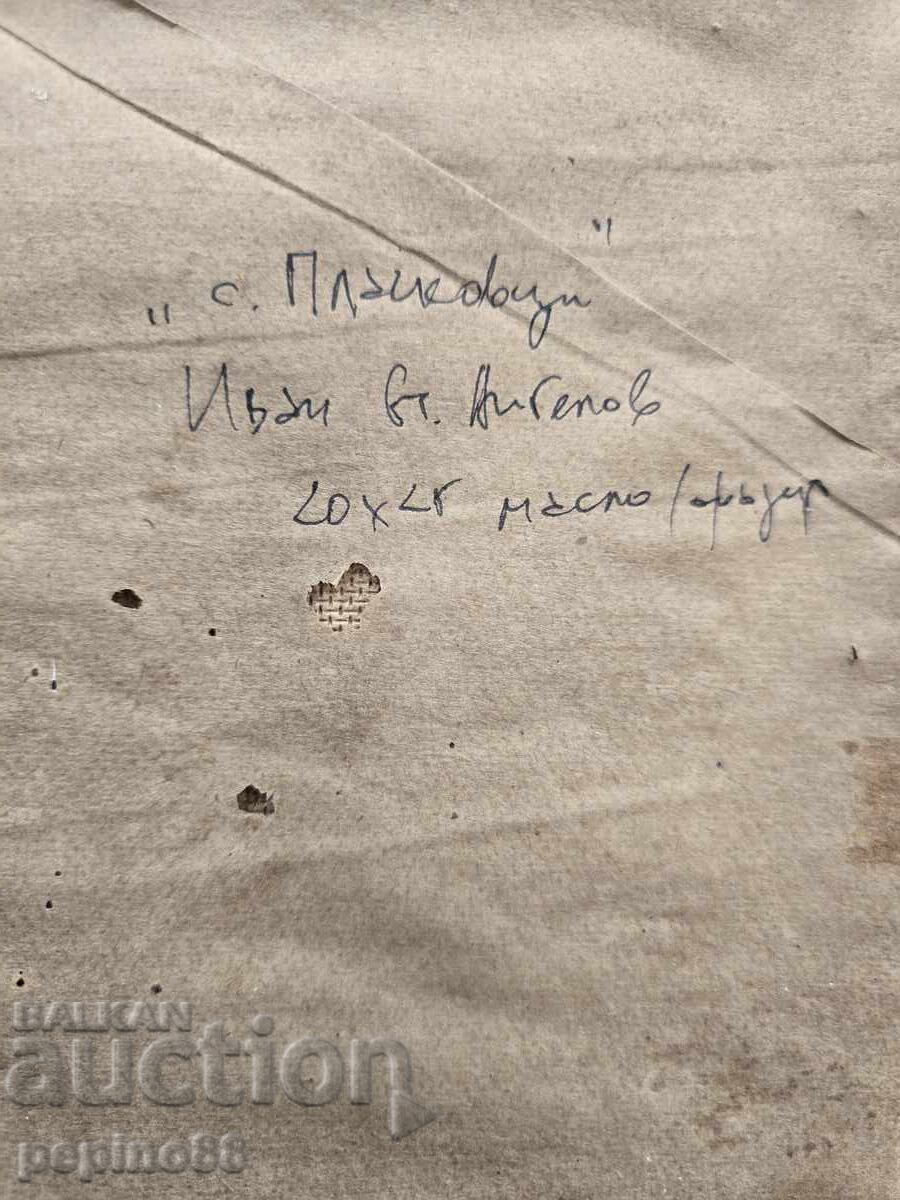 „с. Плачковци"
Иван Ст. Ангелов
20x25 масло/фазер
BALKAN
auction
pepino88